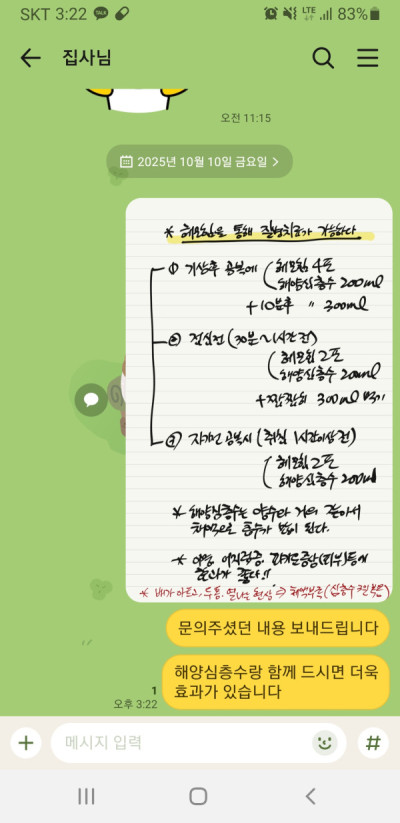 SKT 3:22 TALK LTE 83%
집사님
오전 11:15
2025년 10월 10일 금요일 >
* 해모힘을 통해 질병치료가 가능하다
① 기상후 공복에 ( 해모힘 4포
해양심층수 200ml
+10분후 〃 300ml
② 점심전 (30분~1시간 전)
( 해모힘 2포
해양심층수 200ml
+ 짬짬히 300ml
③ 자기전 공복시 (취침 1시간이상 전)
( 해모힘 2포
해양심층수 200ml
* 해양심층수는 양수와 거의 같아서
체액으로 흡수가 많이 된다.
* 이명, 어지럼증, 가려운증상(피부)등에
효과가 좋다!!
* 배가 아프고, 두통, 열나는 현상 → (심층수
문의주셨던 내용 보내드립니다
해양심층수랑 함께 드시면 더욱
효과가 있습니다
1
오후 3:22
메시지 입력
#